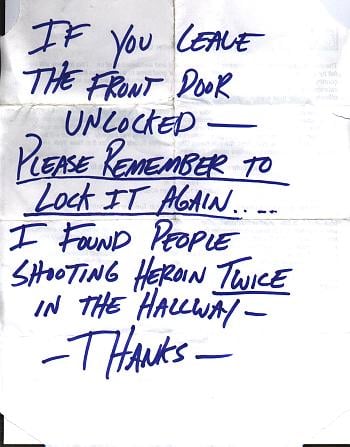 IF YOU LEAVE
THE FRONT DOOR
UNLOCKED —
PLEASE REMEMBER TO
LOCK IT AGAIN....
I FOUND PEOPLE
SHOOTING HEROIN TWICE
IN THE HALLWAY —
— THANKS —